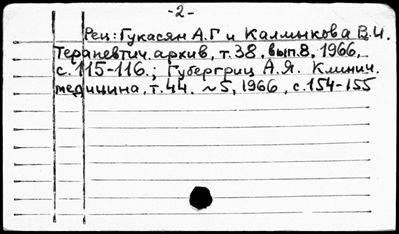 -2-
Рец.: Гукасян А.Г и Калмыкова В.И.
Терапевтич. архив, т.38, вып.8, 1966,
с.115-116.; Губергриц А.Я. Клинич.
медицина, т.44. ~5, 1966, с.154-155